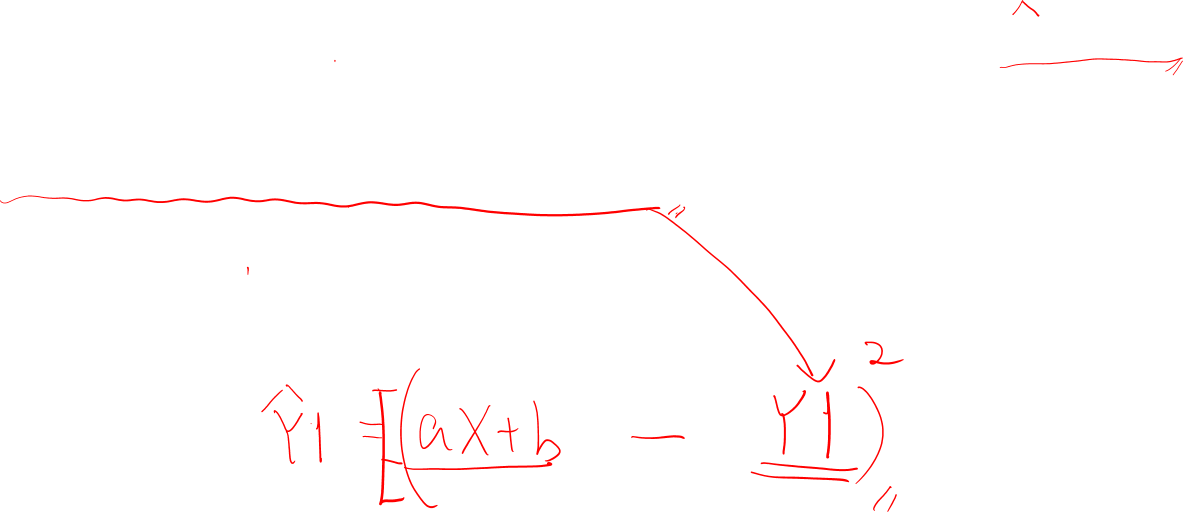 Ŷ1 = [(ax+b − Y1)²